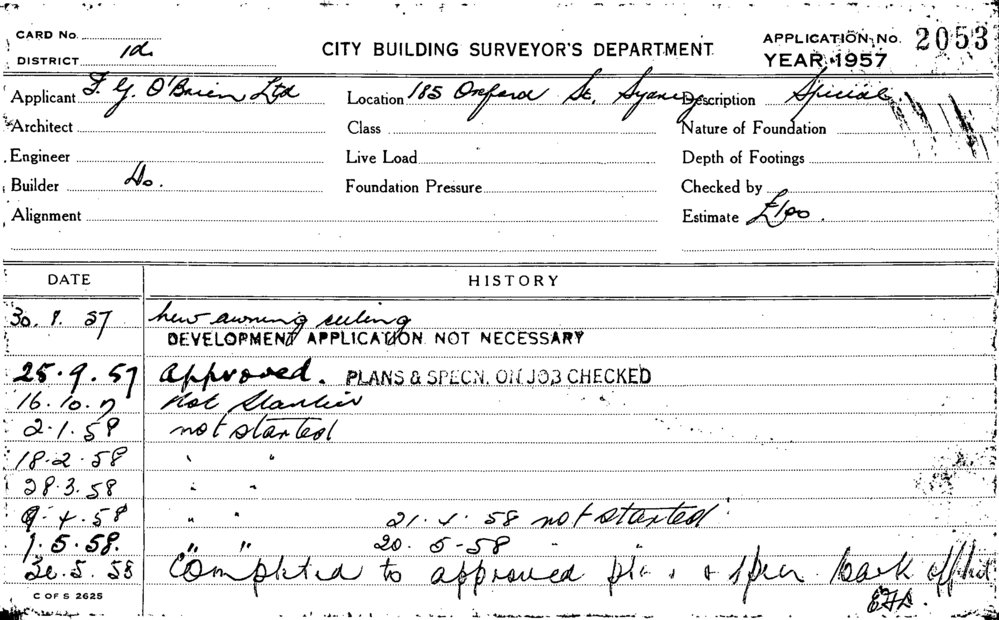 CARD No.
DISTRICT 1d.
CITY BUILDING SURVEYOR'S DEPARTMENT
APPLICATION No. 2053
YEAR 1957
Applicant F. G. O'Brien Ltd Location 185 Oxford St. Sydney Description Special
Architect Class Nature of Foundation
Engineer Live Load Depth of Footings
Builder Do. Foundation Pressure Checked by
Alignment Estimate £100.
DATE HISTORY
30. 57 new awning ceiling
DEVELOPMENT APPLICATION NOT NECESSARY
25.9.57 approved. PLANS & SPECN. ON JOB CHECKED
16.10.7 Not Started
2.1.58 not started
18.2.58 " "
28.3.58 " "
9.4.58 " " 21.4.58 not started
1.5.58. " " 20.5-58 " "
30.5.58 Completed to approved plans & specn
C OF S 2625